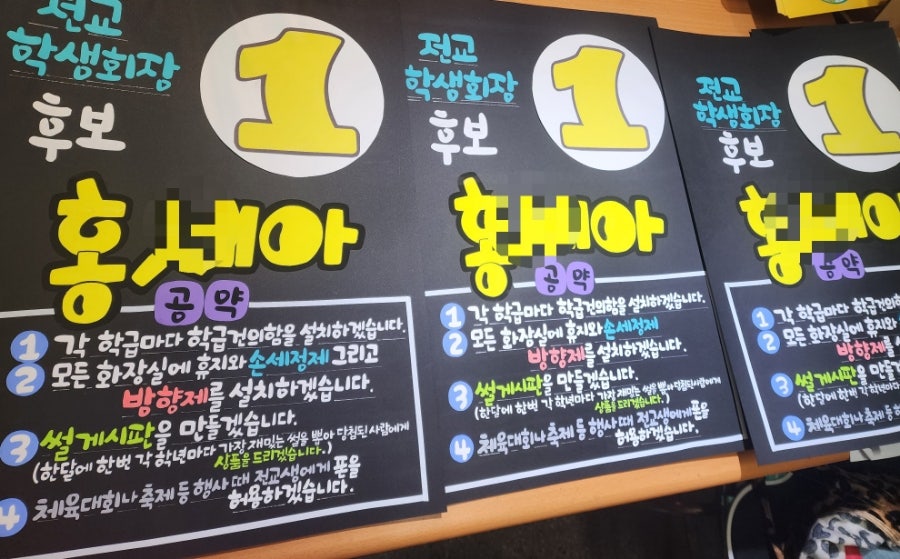 전교
학생회장
후보
1
홍 아
공약
1 각 학급마다 학급건의함을 설치하겠습니다.
2 모든 화장실에 휴지와 손세정제 그리고
방향제를 설치하겠습니다.
3 썰게시판을 만들겠습니다.
(한달에 한번 각 학년마다 가장 재밌는 썰을 뽑아 당첨된 사람에게
상품을 드리겠습니다.)
4 체육대회나 축제 등 행사 때 전교생에게 폰을
허용하겠습니다.
전교
학생회장
후보
1
홍 아
공약
1 각 학급마다 학급건의함을 설치하겠습니다.
2 모든 화장실에 휴지와 손세정제
방향제를 설치하겠습니다.
3 썰게시판을 만들겠습니다.
(한달에 한번 각 학년마다 가장 재밌는 썰을 뽑아 당첨된 사람에게
상품을 드리겠습니다.)
4 체육대회나 축제 등 행사 때 전교생에게 폰을
허용하겠습니다.
전교
학생회장
후보
1
홍
공약
1 각 학급마다 학급건의함
2 모든 화장실에 휴지와
방향제를 설치
3 썰게시판을 만들
(한달에 한번 각 학년마다
4 체육대회나 축제 등